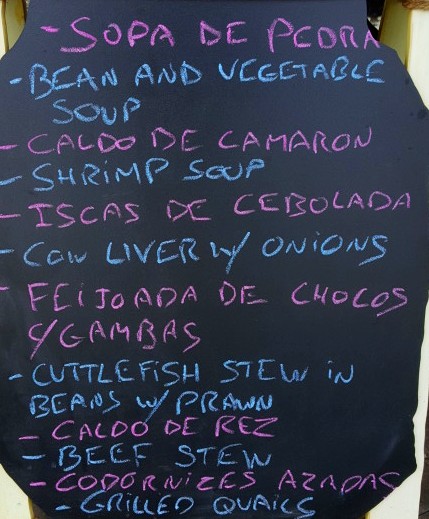 - SOPA DE PEDRA
- BEAN AND VEGETABLE
SOUP
- CALDO DE CAMARON
- SHRIMP SOUP
- ISCAS DE CEBOLADA
- COW LIVER W/ ONIONS
- FEIJOADA DE CHOCOS
C/GAMBAS
- CUTTLEFISH STEW IN
BEANS W/ PRAWN
- CALDO DE REZ
- BEEF STEW
- CODORNIZES AZADAS
- GRILLED QUAILS